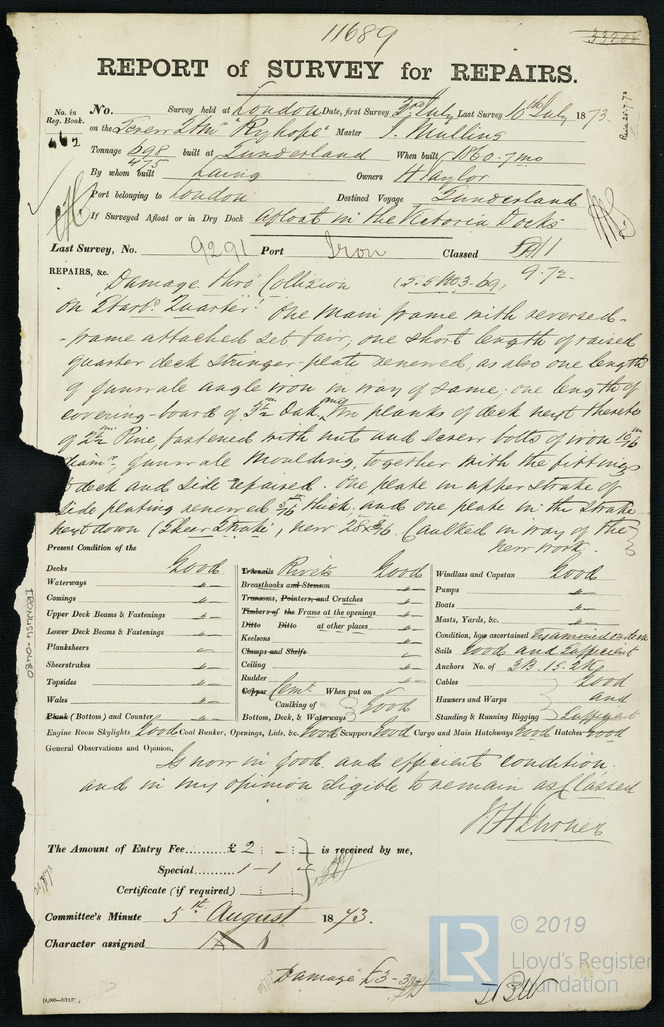 11689
REPORT of SURVEY for REPAIRS.
No. in Reg. Book. 462
No. Survey held at London Date, first Survey 3rd July Last Survey 16th July 1873
on the Screw Str "Ryhope" Master J. Mullins
Tonnage 698 / 475 built at Sunderland When built 1860.7mo
By whom built Laing Owners H Taylor
Port belonging to London Destined Voyage Sunderland
If Surveyed Afloat or in Dry Dock Afloat in the Victoria Docks
Last Survey, No. 9291 Port Iron Classed A1
9.72
REPAIRS, &c. Damage thro' Collision (S.S No3-69)
On "Starbd Quarter" One main frame with reversed-
-frame attached set fair, one short length of raised
quarter deck stringer-plate renewed, as also one length
of gunwale angle iron in way of same; one length of
covering-board of 3½ Oak, and planks of deck next thereto
of 2½ Pine, fastened with nuts and screw bolts of iron 10/16
diamr, gunwale moulding, together with the fittings
deck and side repaired. One plate in upper strake of
side plating renewed 5/16th thick, and one plate in the strake
next down (Sheer Strake), new 28x Caulked in way of the
new work.
Present Condition of the
Decks Good
Waterways "
Comings "
Upper Deck Beams & Fastenings "
Lower Deck Beams & Fastenings "
Planksheers "
Sheerstrakes "
Topsides "
Wales "
Plank (Bottom) and Counter "
Treenails Rivets Good
Breasthooks and Stemson "
Transoms, Pointers, and Crutches "
Timbers of the Frame at the openings "
Ditto Ditto at other places "
Keelsons "
Clamps and Shelfs "
Ceiling "
Rudder "
Copper Cemt When put on
Caulking of Good
Bottom, Deck, & Waterways
Windlass and Capstan Good
Pumps "
Boats "
Masts, Yards, &c. "
Condition, how ascertained Examined
Sails Good and Sufficient
Anchors No. of 3B. 1S. 2K
Cables Good
Hawsers and Warps and
Standing & Running Rigging
Engine Room Skylights Good Coal Bunker, Openings, Lids, &c. Good Scuppers Good Cargo and Main Hatchways Good Hatches Good
General Observations and Opinion,
Is now in good and efficient condition
and in my opinion eligible to remain as Classed
The Amount of Entry Fee......... £ 2 : - : - is received by me,
Special......... 1 - 1 -
Certificate (if required)
Committee's Minute 5th August 1873.
Character assigned A 1
Damage £3-3/
IRON454-0480
© 2019
LR
Lloyd's Register
Foundation